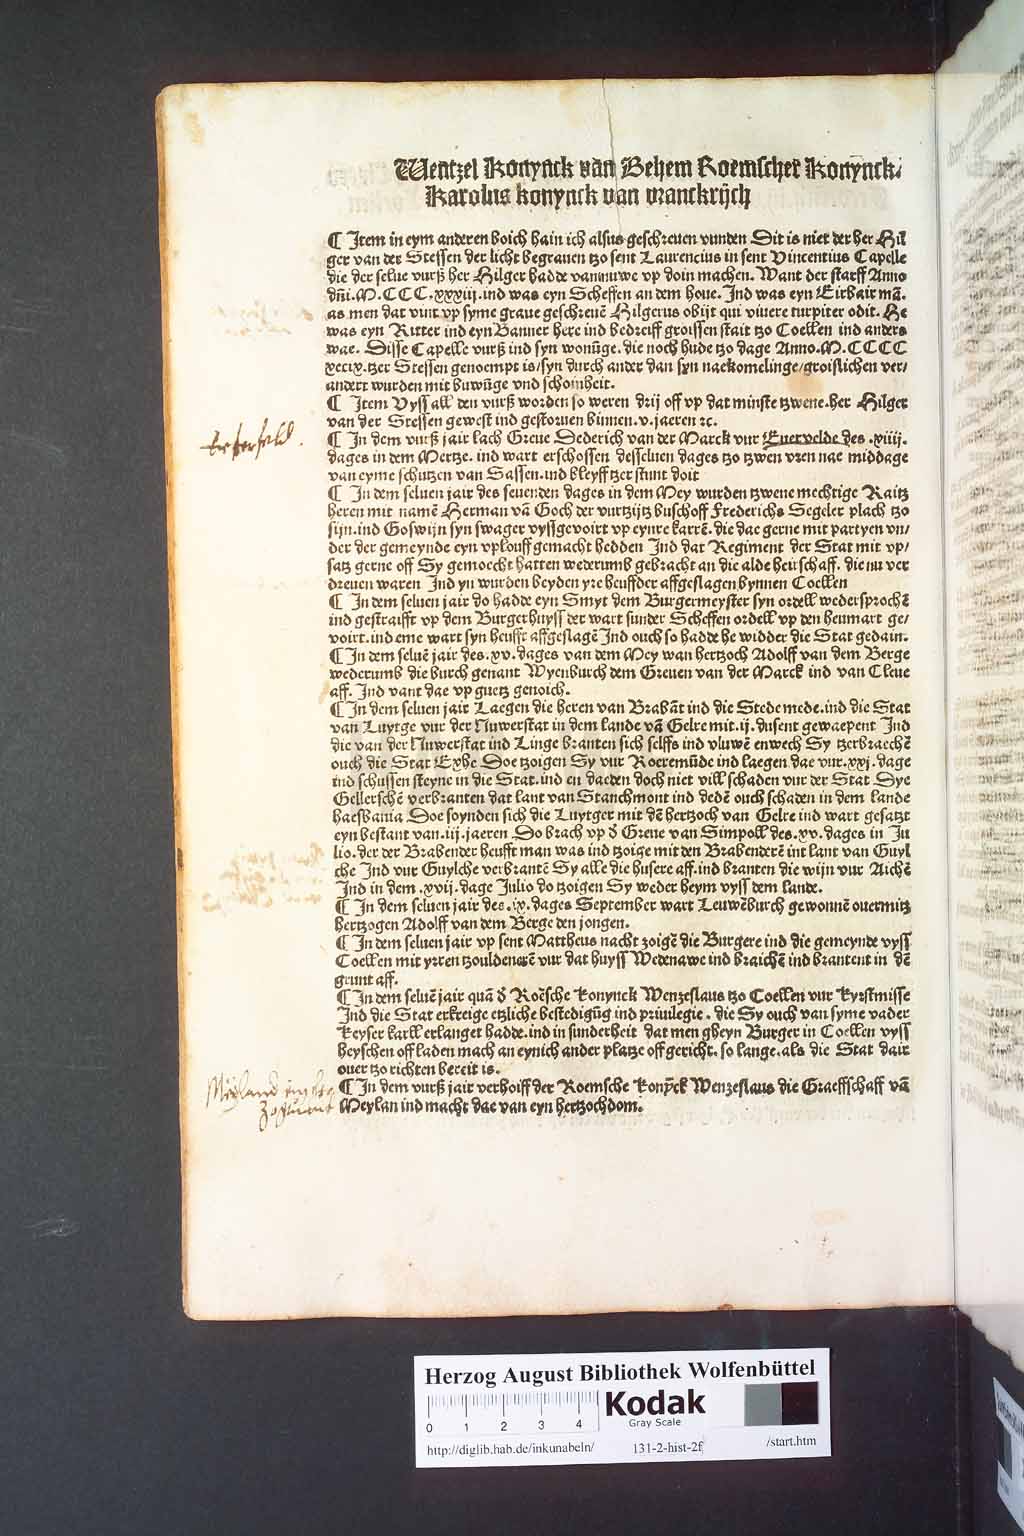 Wentzel Konynck van Behem Roemscher Konynck.
Karolus konynck van vranckrijch
¶ Item in eym anderen boich hain ich alsus geschreuen vunden Dit is niet der her Hil
ger van der Stessen der licht begrauen tzo sent Laurencius in sent Vincentius Capelle
die der selue vurß her Hilger hadde van nuwe vp doin machen. Want der starff Anno
dñi.M.CCC.xxxiij.ind was eyn Scheffen an dem houe. Ind was eyn Eirbair mā.
as men dat vint vp syme graue geschreuē Hilgerus obijt qui viuere turpiter odit. He
was eyn Ritter ind eyn Banner here ind bedreiff groissen stait tzo Coellen ind anders
wae. Disse Capelle vurß ind syn wonūge. die noch hude tzo dage Anno.M.CCCC
xcix.tzer Stessen genoempt is/syn durch ander dan syn naekomelinge/groislichen ver/
andert wurden mit buwūge vnd schoinheit.
¶ Item Vyss all den vurß worden so weren drij off vp dat minste tzwene.her Hilger
van der Stessen gewest ind gestoruen binnen.v.jaeren ꝛc.
Erterfeld.
¶ In dem vurß jair lach Greue Dederich van der Marck vur Euervelde des .xiiij.
dages in dem Mertze. ind wart erschossen desseluen dages tzo tzwen vren nae middage
van eyme schutzen van Sassen.ind bleyff tzer stunt doit
¶ In dem seluen jair des seuenden dages in dem Mey wurden tzwene mechtige Raitz
heren mit namē Herman vā Goch der vurtzijtz buschoff Frederichs Segeler plach tzo
sijn.ind Goswijn syn swager vyssgevoirt vp eynre karrē. die dae gerne mit partyen vn/
der der gemeynde eyn vplouff gemacht hedden Ind dat Regiment der Stat mit vp/
satz gerne off Sy gemoecht hatten wederumb gebracht an die alde heirschaff. die nu ver
dreuen waren Ind yn wurden beyden yre heuffder affgeslagen bynnen Coellen
¶ In dem seluen jair do hadde eyn Smyt dem Burgermeyster syn ordell wedersprochē
ind gestraifft vp dem Burgerhuyss der wart sunder Scheffen ordell vp den heumart ge/
voirt.ind eme wart syn heufft affgeslagē Ind ouch so hadde he widder die Stat gedain.
¶ In dem seluē jair des.xv.dages van dem Mey wan hertzoch Adolff van dem Berge
wederumb die burch genant Wyenburch dem Greuen van der Marck ind van Cleue
aff. Ind vant dae vp guetz genoich.
¶ In dem seluen jair Laegen die heren van Brabāt ind die Stede mede.ind die Stat
van Luytge vur der Nuwerstat in dem lande vā Gelre mit.ij.dusent gewaepent Ind
die van der Nuwerstat ind Linge branten sich selffs ind vluwē enwech Sy tzerbraechē
ouch die Stat Exhe Doe tzoigen Sy vur Roeremūde ind laegen dae vur.xxj.dage
ind schussen steyne in die Stat.ind en daeden doch niet vill schaden vur der Stat Dye
Gellerschē verbranten dat lant van Stanchmont ind dedē ouch schaden in dem lande
haesbania Doe soynden sich die Luytger mit dē hertzoch van Gelre ind wart gesatzt
eyn bestant van.iij.jaeren Do brach vp ð Greue van Simpoll des.xv.dages in Ju
lio.der der Brabender heufft man was ind tzoige mit den Brabenderē int lant van Guyl
che Ind vur Guylche verbrantē Sy alle die husere aff.ind branten die wijn vur Aichē
Ind in dem .xvij.dage Julio do tzoigen Sy weder heym vyss dem lande.
¶ In dem seluen jair des.ix.dages September wart Leuwēburch gewonnē ouermitz
hertzogen Adolff van dem Berge den jongen.
¶ In dem seluen jair vp sent Mattheus nacht zoigē die Burgere ind die gemeynde vyss
Coellen mit yrren tzouldenerē vur dat huyss Wedenawe ind braichē ind brantent in dē
grunt aff.
¶ In dem seluē jair quā ð Roēsche Konynck Wenzeslaus tzo Coellen vur Kyrstmisse
Ind die Stat erkreige etzliche bestedigūg ind priuilegie. die Sy ouch van syme vader
Keyser karll erlanget hadde.ind in sunderheit dat men gheyn Burger in Coellen vyss
heyschen off laden mach an eynich ander platze off gericht. so lange.als die Stat dair
ouer tzo richten bereit is.
Meyland
¶ In dem vurß jair verhoiff der Roemsche konyck Wenzeslaus die Graeffschaff vā
Meylan ind macht dae van eyn hertzochdom.
Herzog August Bibliothek Wolfenbüttel
0 1 2 3 4
Kodak
Gray Scale
http://diglib.hab.de/inkunabeln/ 131-2-hist-2f /start.htm